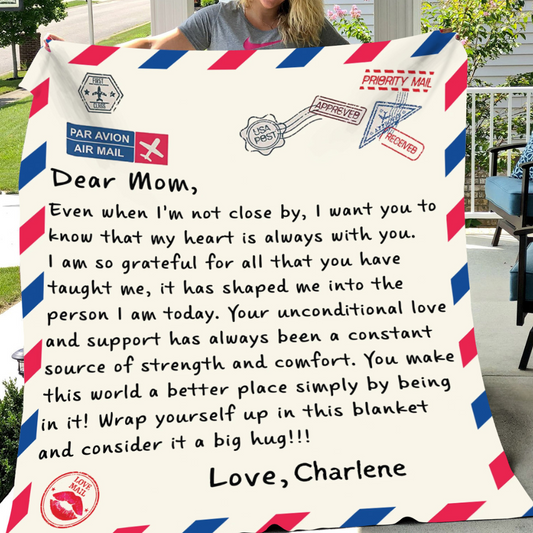 FIRST
CLASS
PRIORITY MAIL
APPREVEB
USA
POST
RECEVEB
PAR AVION
AIR MAIL
Dear Mom,
Even when I'm not close by, I want you to
know that my heart is always with you.
I am so grateful for all that you have
taught me, it has shaped me into the
person I am today. Your unconditional love
and support has always been a constant
source of strength and comfort. You make
this world a better place simply by being
in it! Wrap yourself up in this blanket
and consider it a big hug!!!
Love, Charlene
LOVE
MAIL